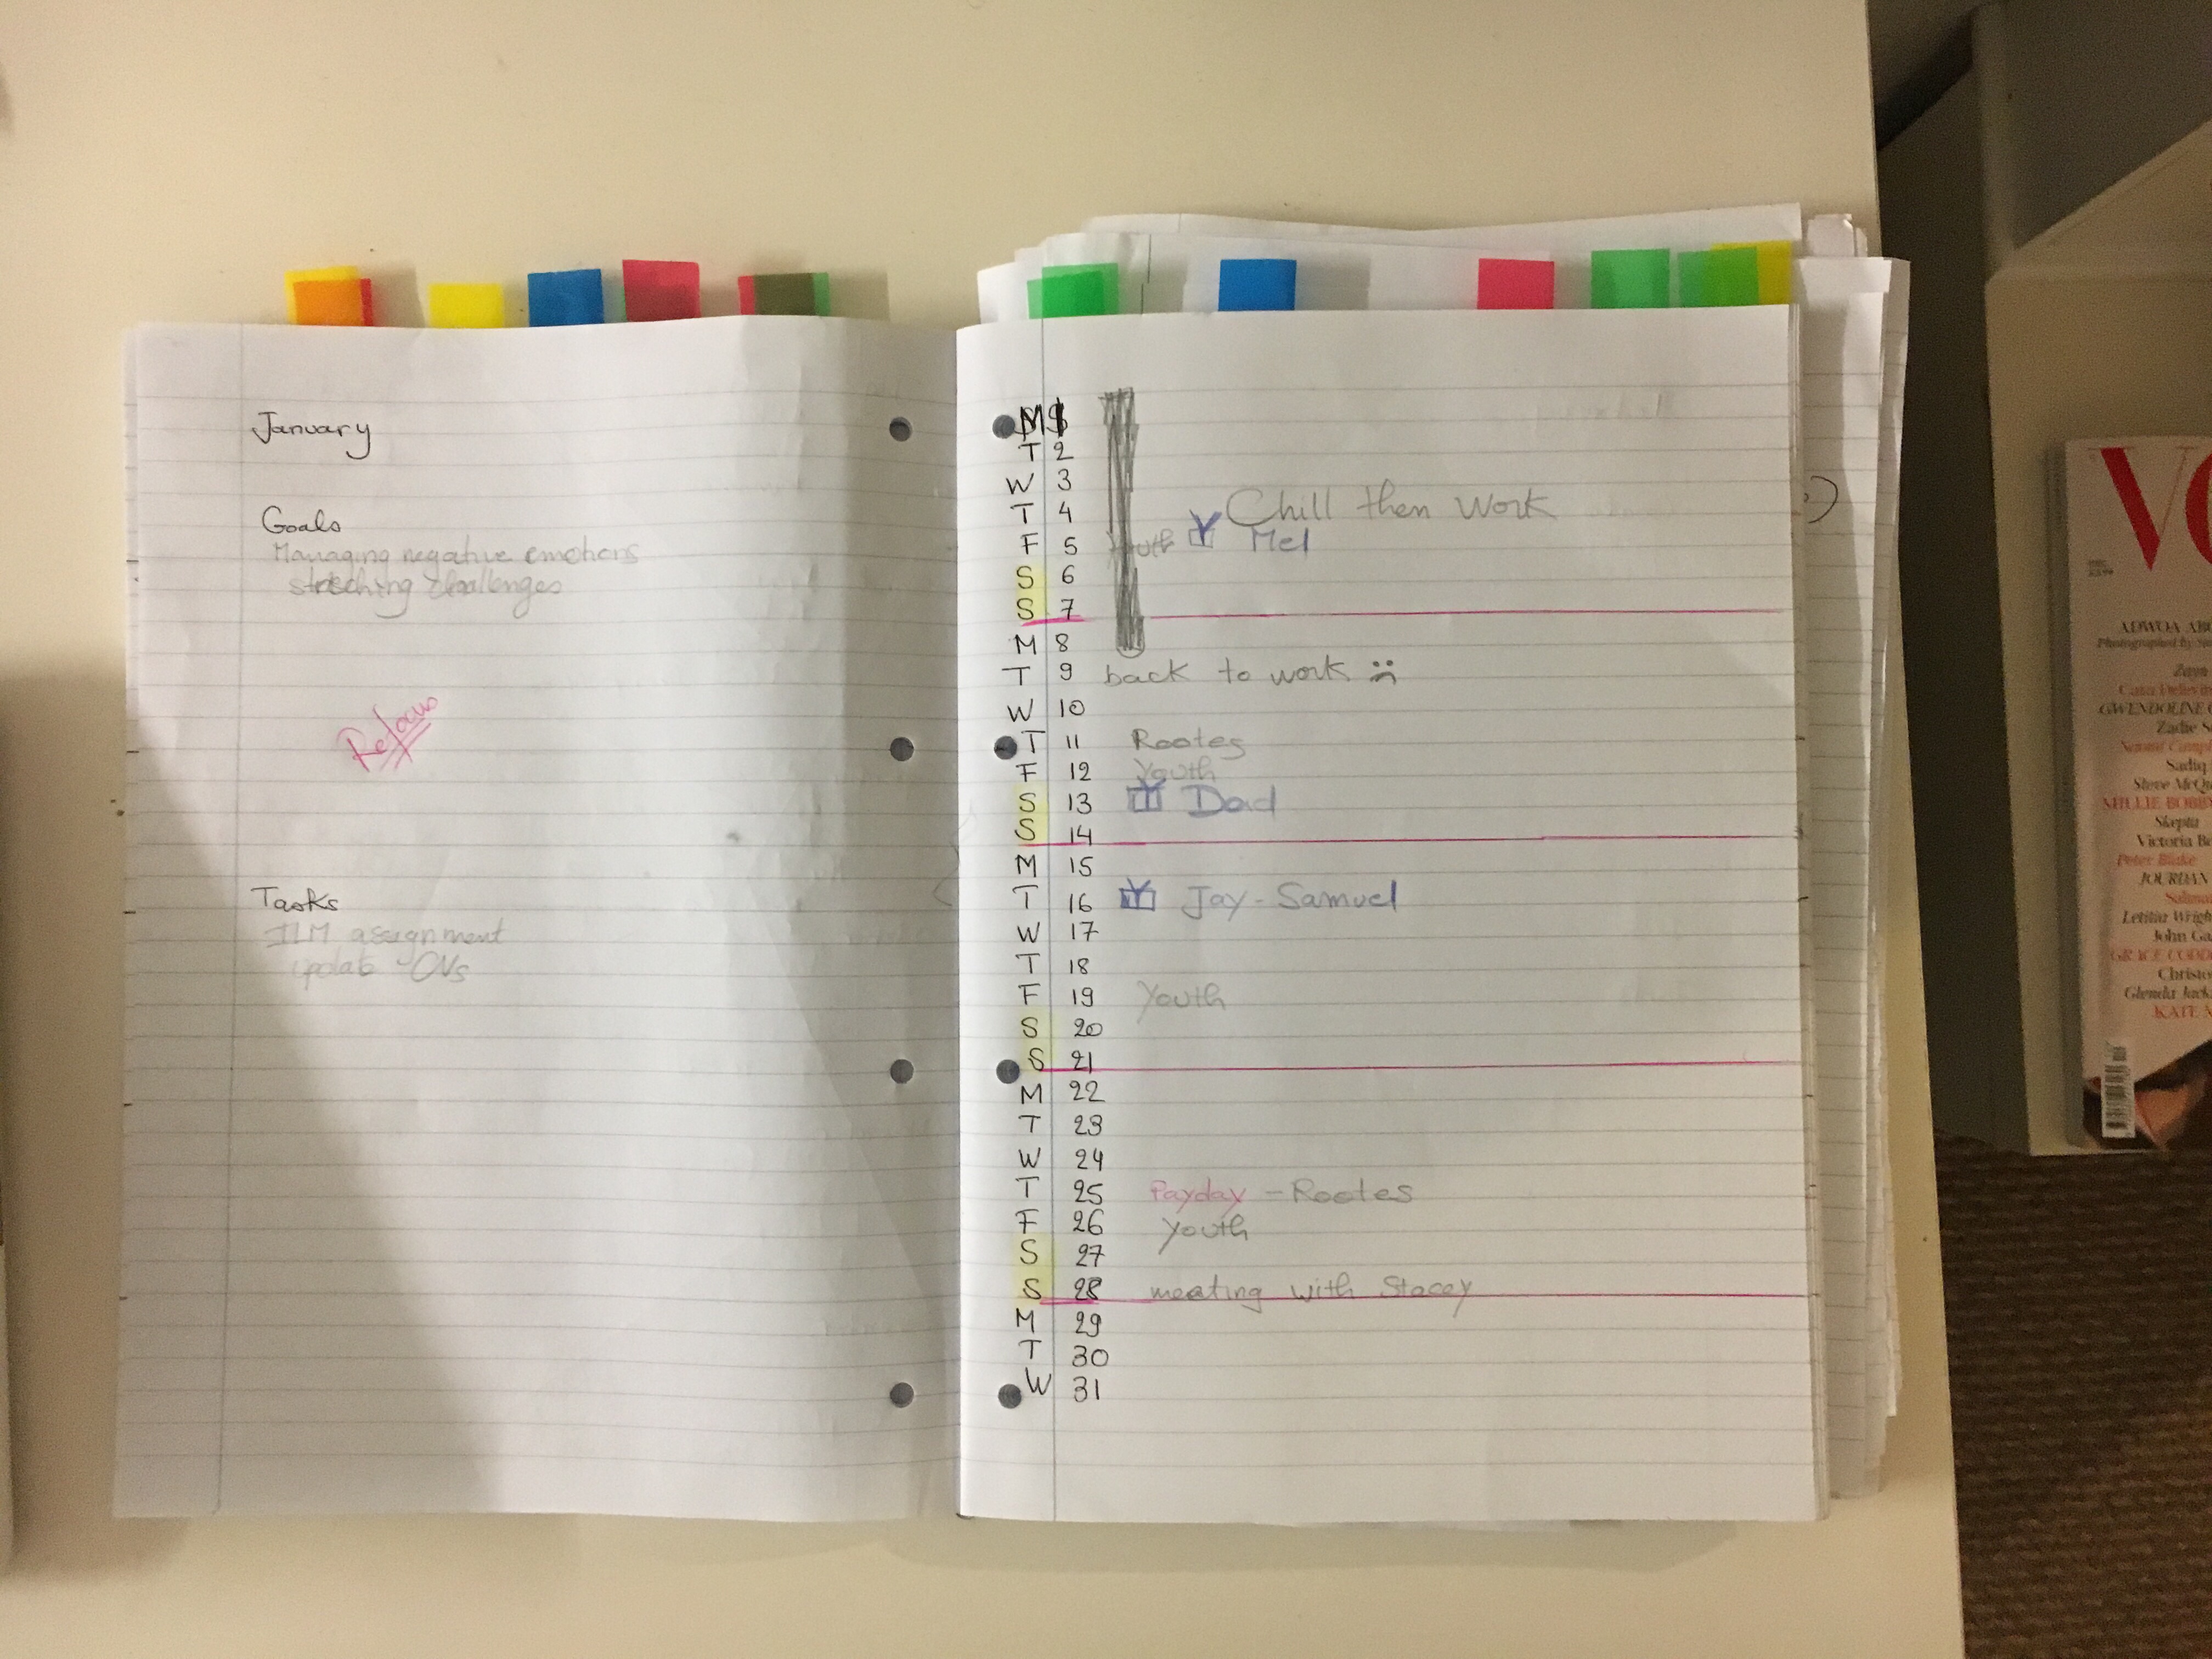 January
Goals
Managing negative emotions
stretching challenges
Refocus
Tasks
ILM assignment
update CVs
M 1
T 2
W 3
T 4 Chill then Work
F 5 Youth Mel
S 6
S 7
M 8
T 9 back to work :(
W 10
T 11 Rootes
F 12 Youth
S 13 Dad
S 14
M 15
T 16 Jay-Samuel
W 17
T 18
F 19 Youth
S 20
S 21
M 22
T 23
W 24
T 25 Payday - Rootes
F 26 Youth
S 27
S 28 meeting with Stacey
M 29
T 30
W 31
VO
ADWOA
Photographed by
Zawe
Cara
GWENDOLINE
Zadie
Naomi
Sadiq
Steve
MILLIE BOBBY
Skepta
Victoria
Peter Blake
JOURDAN
Letitia
John
GRACE
Glenda
KATE